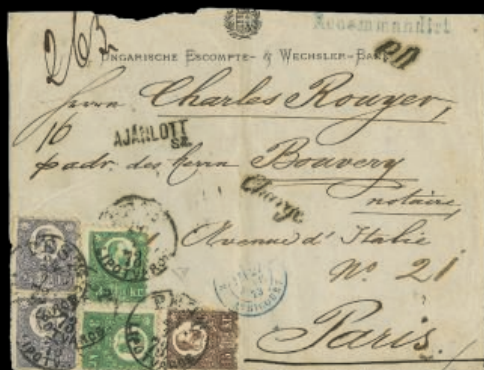 Recommandirt
263
P.D.
UNGARISCHE ESCOMPTE- & WECHSLER-BANK
Herrn Charles Rouyer,
16
AJÁNLOTT
SZ.
p adr. des Herrn Bouvery
Chargé
notaire,
Avenue d'Italie
No. 21
Paris.
PEST
LIPOTVÁROS
AVRICOURT
KR